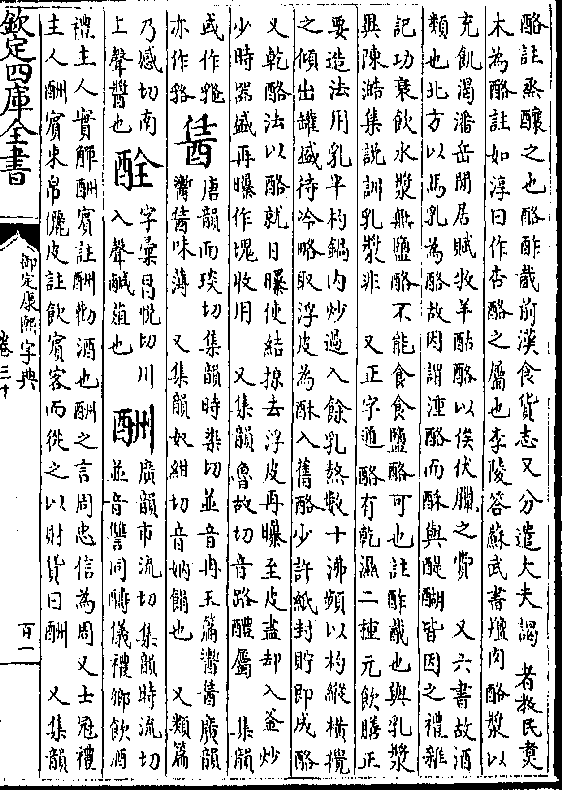 酪註烝釀之也酪酢截前漢食貨志又分遣大夫謁者敎民煑
木為酪註如淳曰作杏酪之屬也李陵答蘇武書羶肉酪漿以
充飢渴潘岳閒居賦牧羊酤酪以俟伏臘之費　又六書故酒
類也北方以馬乳為酪故因謂湩酪而酥與醍醐皆因之禮雜
記功衰飲水漿無鹽酪不能食食鹽酪可也註酢截也與乳漿
異陳澔集説訓乳漿非　又正字通酪有乾濕二種元飲膳正
要造法用乳半杓鍋内炒過入餘乳熬數十沸頻以杓縱橫攪
之傾出罐盛待冷略取浮皮為酥入舊酪少許紙封貯即成酪
又乾酪法以酪就日曝使結掠去浮皮再曝至皮盡却入釜炒
少時器盛再曝作塊收用　又集韻魯故切音路醴屬　集韻
或作𩊚
亦作𩊚
唐韻而琰切集韻時染切並音冉玉篇䤘廣韻
味薄　又集韻奴紺切音妠餉也　又類篇
乃感切南
上聲醬也
酫
字彙胥悦切川
入聲鹹葅也
酬
廣韻市流切集韻時流切
並音讐同醻儀禮鄉飲酒
禮主人實觶酬賓註酬勸酒也酬之言周忠信為周又士冠禮
主人酬賓束帛儷皮註飲賓客而從之以財貨曰酬　又集韻
欽定四庫全書
御定康熙字典
卷三十
百一